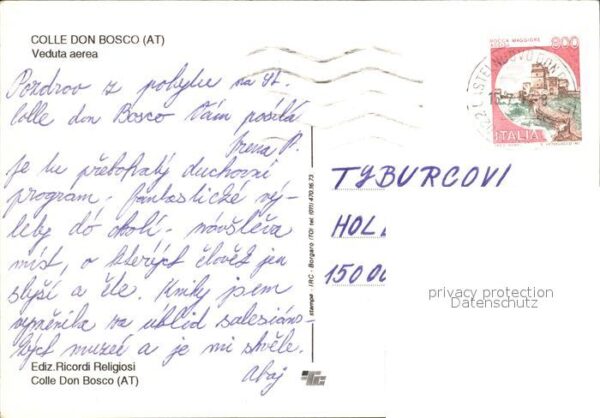 COLLE DON BOSCO (AT)
Veduta aerea
Pozdrav z pobytu na St.
Colle don Bosco Vám posílá
Irena P.
Je tu přebohatý duchovní
program - fantastické vý-
lety do okolí - návštěva
míst, o kterých člověk jen
slyší a čte. Knihy jsem
vyměnila za úklid salesiáns-
kých muzeí a je mi skvěle.
Ahoj
Ediz.Ricordi Religiosi
Colle Don Bosco (AT)
stampa - I.R.C. - Borgaro (TO) tel. (011) 470.16.73
ROCCA MAGGIORE
800
ITALIA
TYBURCOVI
HOL
150 00
privacy protection
Datenschutz